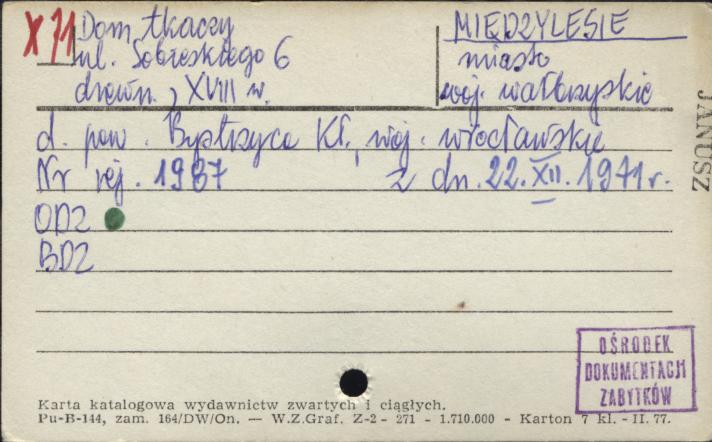 X 71
Dom tkaczy
ul. Sobieskiego 6
drewn., XVIII w.
MIĘDZYLESIE
miasto
woj. wałbrzyskie
d. pow. Bystrzyca Kł., woj. wrocławskie
Nr rej. 1937 z dn. 22.XII.1971 r.
ODZ
BDZ
JANUSZ
OŚRODEK
DOKUMENTACJI
ZABYTKÓW
Karta katalogowa wydawnictw zwartych i ciągłych.
Pu-B-144, zam. 164/DW/On. — W.Z.Graf. Z-2 - 271 - 1.710.000 - Karton 7 kl. - II. 77.